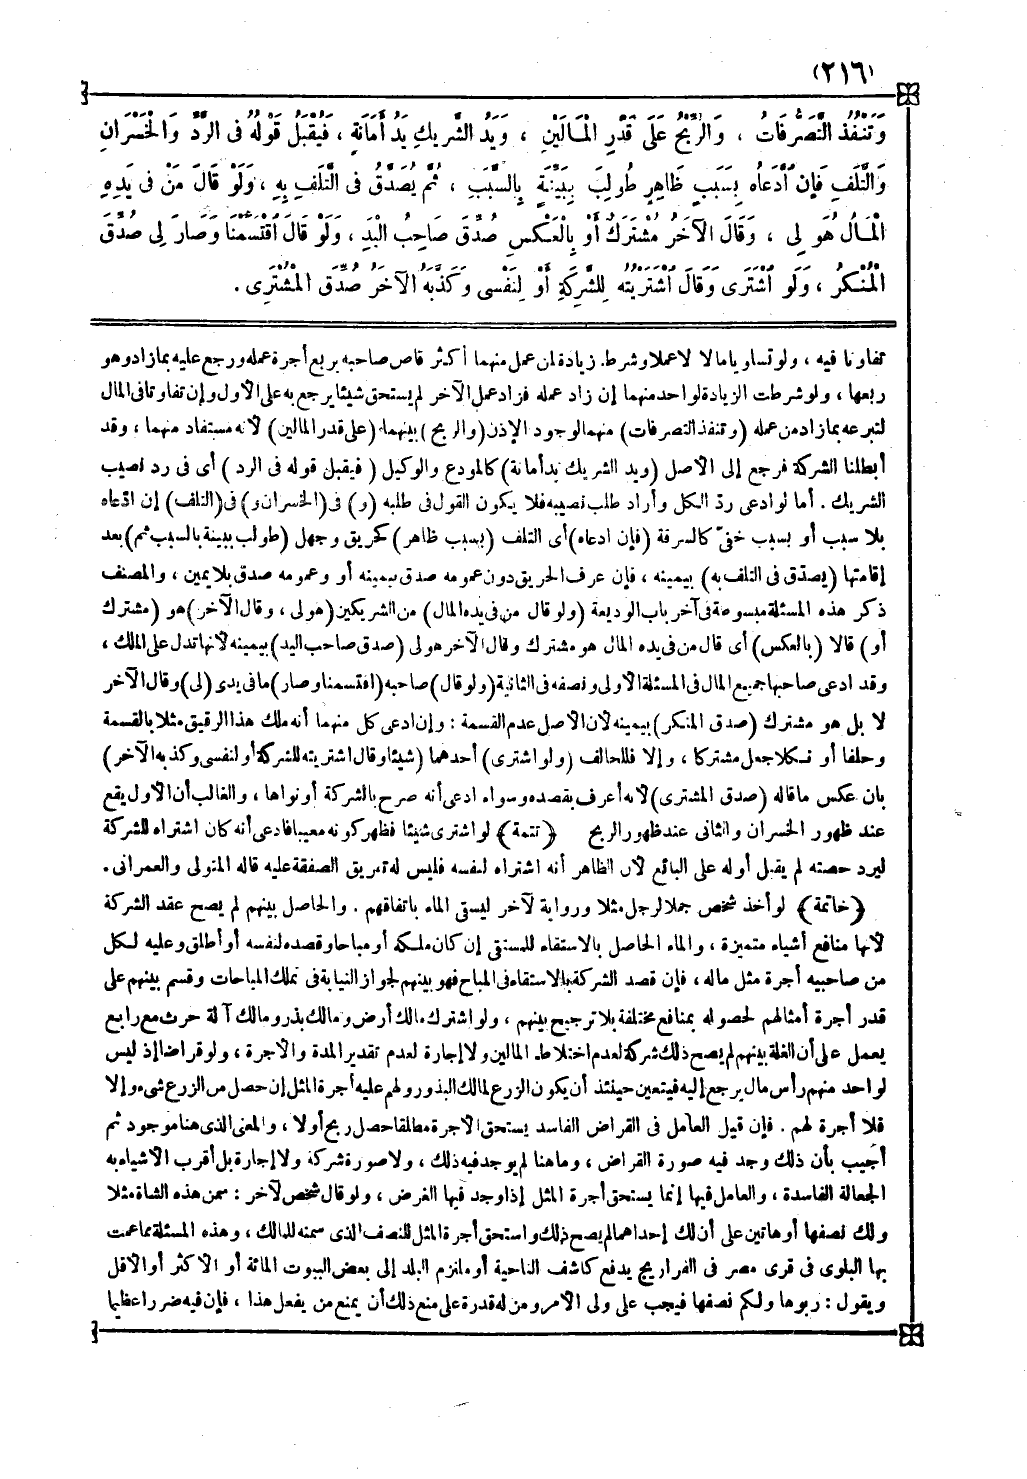 (٢١٦)
وَتَنْفُذُ التَّصَرُّفَاتُ ، وَالرِّبْحُ عَلَى قَدْرِ الْمَالَيْنِ ، وَيَدُ الشَّرِيكِ يَدُ أَمَانَةٍ ، فَيُقْبَلُ قَوْلُهُ فِى الرَّدِّ وَالْخُسْرَانِ
وَالتَّلَفِ فَإِنِ ٱدَّعَاهُ بِسَبَبٍ ظَاهِرٍ طُولِبَ بِبَيِّنَةٍ بِالسَّبَبِ ، ثُمَّ يُصَدَّقُ فِى التَّلَفِ بِهِ ، وَلَوْ قَالَ مَنْ فِى يَدِهِ
الْمَالُ هُوَ لِى ، وَقَالَ الْآخَرُ مُشْتَرَكٌ أَوْ بِالْعَكْسِ صُدِّقَ صَاحِبُ الْيَدِ ، وَلَوْ قَالَ ٱقْتَسَمْنَا وَصَارَ لِى صُدِّقَ
الْمُنْكِرُ ، وَلَوِ ٱشْتَرَى وَقَالَ ٱشْتَرَيْتُهُ لِلشَّرِكَةِ أَوْ لِنَفْسِى وَكَذَّبَهُ الْآخَرُ صُدِّقَ الْمُشْتَرِى .
تفاوتا فيه ، ولو تساويا مالا لا عملا وشرط زيادة لمن عمل منهما أكثر قاص صاحبه بربع أجرة عمله ورجع عليه بما زاد وهو
ربعها ، ولو شرطت الزيادة لواحد منهما إن زاد عمله فزاد عمل الآخر لم يستحق شيئا يرجع به على الأول وإن تفاوتا فى المال
لتبرعه بما زاد من عمله (وتنفذ التصرفات) منهما لوجود الإذن (والربح) بينهما (على قدر المالين) لأنه مستفاد منهما ، وقد
أبطلنا الشركة فرجع إلى الأصل (ويد الشريك يد أمانة) كالمودع والوكيل (فيقبل قوله فى الرد) أى فى رد نصيب
الشريك . أما لو ادعى ردّ الكل وأراد طلب نصيبه فلا يكون القول فى طلبه (و) فى (الخسران و) فى (التلف) إن ادّعاه
بلا سبب أو بسبب خفىّ كالسرقة (فإن ادعاه) أى التلف (بسبب ظاهر) كحريق وجهل (طولب ببينة بالسبب ثم) بعد
إقامتها (يصدّق فى التلف به) بيمينه ، فإن عرف الحريق دون عمومه صدق بيمينه أو وعمومه صدق بلا يمين ، والمصنف
ذكر هذه المسئلة مبسوطة فى آخر باب الوديعة (ولو قال من فى يده المال) من الشريكين (هو لى ، وقال الآخر) هو (مشترك
أو) قالا (بالعكس) أى قال من فى يده المال هو مشترك وقال الآخر هو لى (صدق صاحب اليد) بيمينه لأنها تدل على الملك ،
وقد ادعى صاحبها جميع المال فى المسئلة الأولى ونصفه فى الثانية (ولو قال) صاحبه (اقتسمنا وصار) ما فى يدى (لى) وقال الآخر
لا بل هو مشترك (صدق المنكر) بيمينه لأن الأصل عدم القسمة : وإن ادعى كل منهما أنه ملك هذا الرقيق مثلا بالقسمة
وحلفا أو نكلا جعل مشتركا ، وإلا فللحالف (ولو اشترى) أحدهما (شيئا وقال اشتريته للشركة أو لنفسى وكذبه الآخر)
بان عكس ما قاله (صدق المشترى) لأنه أعرف بقصده وسواء ادعى أنه صرح بالشركة أو نواها ، والغالب أن الأول يقع
عند ظهور الخسران والثانى عند ظهور الربح ﴿ تتمة ﴾ لو اشترى شيئا فظهر كونه معيبا فادعى أنه كان اشتراه للشركة
ليرد حصته لم يقبل قوله على البائع لأن الظاهر أنه اشتراه لنفسه فليس له تفريق الصفقة عليه قاله المتولى والعمرانى .
﴿ خاتمة ﴾ لو أخذ شخص جملا لرجل مثلا وروایة لآخر ليستقى الماء باتفاقهم . والحاصل بينهم لم يصح عقد الشركة
لأنها منافع أشياء متميزة ، والماء الحاصل بالاستقاء للمستقى إن كان ملكه أو مباحا وقصده لنفسه أو أطلق وعليه لكل
من صاحبيه أجرة مثل ماله ، فإن قصد الشركة بالاستقاء فى المباح فهو بينهم لجواز النيابة فى تملك المباحات وقسم بينهم على
قدر أجرة أمثالهم لحصوله بمنافع مختلفة بلا ترجيح بينهم ، ولو اشترك مالك أرض ومالك بذر ومالك آلة حرث مع رابع
يعمل على أن الغلة بينهم لم يصح ذلك شركة لعدم اختلاط المالين ولا إجارة لعدم تقدير المدة والأجرة ، ولا قراضا إذ ليس
لواحد منهم رأس مال يرجع إليه فيتعين حينئذ أن يكون الزرع لمالك البذر ولهم عليه أجرة المثل إن حصل من الزرع شىء وإلا
فلا أجرة لهم . فإن قيل العامل فى القراض الفاسد يستحق الأجرة مطلقا حصل ربح أو لا ، والمعنى الذى هنا موجود ثم
أجيب بأن ذلك وجد فيه صورة القراض ، وما هنا لم يوجد فيه ذلك ، ولا صورة شركة ولا إجارة بل أقرب الأشياء به
الجعالة الفاسدة ، والعامل فيها إنما يستحق أجرة المثل إذا وجد فيها الغرض ، ولو قال شخص لآخر : سمن هذه الشاة مثلا
ولك نصفها أو هاتين على أن لك إحداهما لم يصح ذلك واستحق أجرة المثل للنصف الذى سمنه للمالك ، وهذه المسئلة مما عمت
بها البلوى فى قرى مصر فى الفراريج يدفع كاشف الناحية أو ملتزم البلد إلى بعض البيوت المائة أو الأكثر أو الأقل
ويقول : ربوها ولكم نصفها فيجب على ولى الأمر ومن له قدرة على منع ذلك أن يمنع من يفعل هذا ، فإن فيه ضررا عظيما